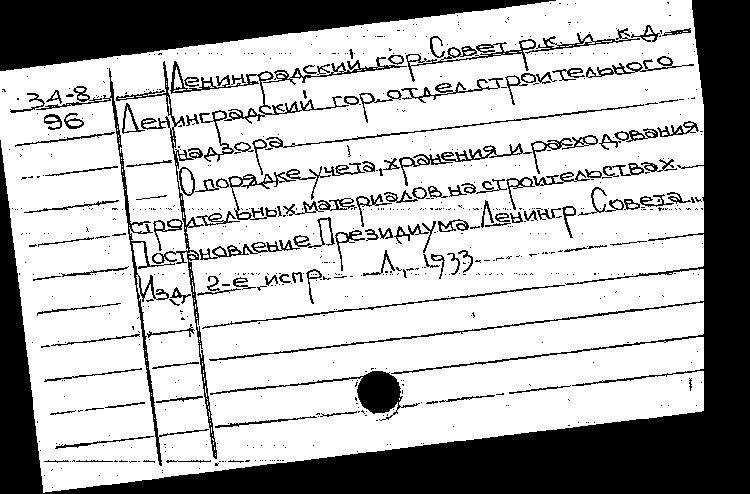 Ленинградский гор. Совет р.к. и к.д.
34-8
96
Ленинградский гор. отдел строительного
надзора.
О порядке учета, хранения и расходования
строительных материалов на строительствах.
Постановление Президиума Ленингр. Совета...
Изд. 2-е испр. Л., 1933